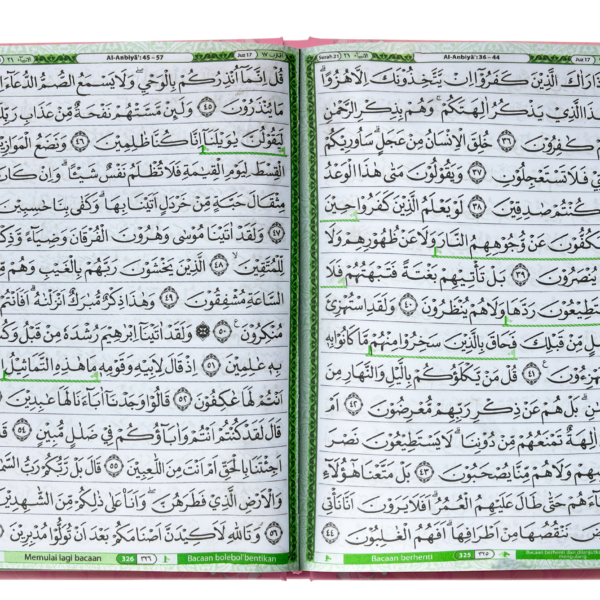 Surah 21 الانبياء ٢١ Al-Anbiyā': 36 - 44 Juz 17
رَاٰكَ الَّذِيْنَ كَفَرُوْٓا اِنْ يَّتَّخِذُوْنَكَ اِلَّا هُزُوًا
الَّذِيْ يَذْكُرُ اٰلِهَتَكُمْ ۚ وَهُمْ بِذِكْرِ الرَّحْمٰنِ
كٰفِرُوْنَ ٣٦ خُلِقَ الْاِنْسَانُ مِنْ عَجَلٍ ۗ سَاُورِيْكُمْ
فَلَا تَسْتَعْجِلُوْنِ ٣٧ وَيَقُوْلُوْنَ مَتٰى هٰذَا الْوَعْدُ
كُنْتُمْ صٰدِقِيْنَ ٣٨ لَوْ يَعْلَمُ الَّذِيْنَ كَفَرُوْا حِيْنَ
يَكُفُّوْنَ عَنْ وُّجُوْهِهِمُ النَّارَ وَلَا عَنْ ظُهُوْرِهِمْ وَلَا
يُنْصَرُوْنَ ٣٩ بَلْ تَأْتِيْهِمْ بَغْتَةً فَتَبْهَتُهُمْ فَلَا
يَسْتَطِيْعُوْنَ رَدَّهَا وَلَا هُمْ يُنْظَرُوْنَ ٤٠ وَلَقَدِ اسْتُهْزِئَ
مِّنْ قَبْلِكَ فَحَاقَ بِالَّذِيْنَ سَخِرُوْا مِنْهُمْ مَّا كَانُوْا بِهٖ
٤١ قُلْ مَنْ يَّكْلَؤُكُمْ بِالَّيْلِ وَالنَّهَارِ مِنَ
بَلْ هُمْ عَنْ ذِكْرِ رَبِّهِمْ مُّعْرِضُوْنَ ٤٢ اَمْ
اٰلِهَةٌ تَمْنَعُهُمْ مِّنْ دُوْنِنَا ۗ لَا يَسْتَطِيْعُوْنَ نَصْرَ
وَلَا هُمْ مِّنَّا يُصْحَبُوْنَ ٤٣ بَلْ مَتَّعْنَا هٰٓؤُلَاۤءِ
حَتّٰى طَالَ عَلَيْهِمُ الْعُمُرُ ۗ اَفَلَا يَرَوْنَ اَنَّا نَأْتِى
نَنْقُصُهَا مِنْ اَطْرَافِهَا ۗ اَفَهُمُ الْغٰلِبُوْنَ ٤٤
Bacaan berhenti 325 ٣٢٥
الانبياء ٢١ Al-Anbiyā': 45 - 57 Juz 17
قُلْ اِنَّمَآ اُنْذِرُكُمْ بِالْوَحْيِ ۖ وَلَا يَسْمَعُ الصُّمُّ الدُّعَاۤءَ
مَا يُنْذَرُوْنَ ٤٥ وَلَىِٕنْ مَّسَّتْهُمْ نَفْحَةٌ مِّنْ عَذَابِ
لَيَقُوْلُنَّ يٰوَيْلَنَآ اِنَّا كُنَّا ظٰلِمِيْنَ ٤٦ وَنَضَعُ
الْقِسْطَ لِيَوْمِ الْقِيٰمَةِ فَلَا تُظْلَمُ نَفْسٌ شَيْـًٔا ۗ وَاِنْ كَانَ
مِثْقَالَ حَبَّةٍ مِّنْ خَرْدَلٍ اَتَيْنَا بِهَا ۗ وَكَفٰى بِنَا حٰسِبِيْنَ
٤٧ وَلَقَدْ اٰتَيْنَا مُوْسٰى وَهٰرُوْنَ الْفُرْقَانَ وَضِيَاۤءً
لِّلْمُتَّقِيْنَ ٤٨ الَّذِيْنَ يَخْشَوْنَ رَبَّهُمْ بِالْغَيْبِ وَهُمْ
السَّاعَةِ مُشْفِقُوْنَ ٤٩ وَهٰذَا ذِكْرٌ مُّبٰرَكٌ اَنْزَلْنٰهُ ۗ اَفَاَنْتُمْ
مُنْكِرُوْنَ ٥٠ وَلَقَدْ اٰتَيْنَآ اِبْرٰهِيْمَ رُشْدَهٗ مِنْ قَبْلُ
بِهٖ عٰلِمِيْنَ ٥١ اِذْ قَالَ لِاَبِيْهِ وَقَوْمِهٖ مَا هٰذِهِ التَّمَاثِيْلُ
اَنْتُمْ لَهَا عٰكِفُوْنَ ٥٢ قَالُوْا وَجَدْنَآ اٰبَاۤءَنَا لَهَا عٰبِدِيْنَ
قَالَ لَقَدْ كُنْتُمْ اَنْتُمْ وَاٰبَاۤؤُكُمْ فِيْ ضَلٰلٍ مُّبِيْنٍ ٥٤
اَجِئْتَنَا بِالْحَقِّ اَمْ اَنْتَ مِنَ اللّٰعِبِيْنَ ٥٥ قَالَ بَلْ رَّبُّكُمْ رَبُّ
وَالْاَرْضِ الَّذِيْ فَطَرَهُنَّ ۖ وَاَنَا۠ عَلٰى ذٰلِكُمْ مِّنَ الشّٰهِدِيْنَ
٥٦ وَتَاللّٰهِ لَاَكِيْدَنَّ اَصْنَامَكُمْ بَعْدَ اَنْ تُوَلُّوْا مُدْبِرِيْنَ
Memulai lagi bacaan 326 ٣٢٦ Bacaan boleh berhentikan